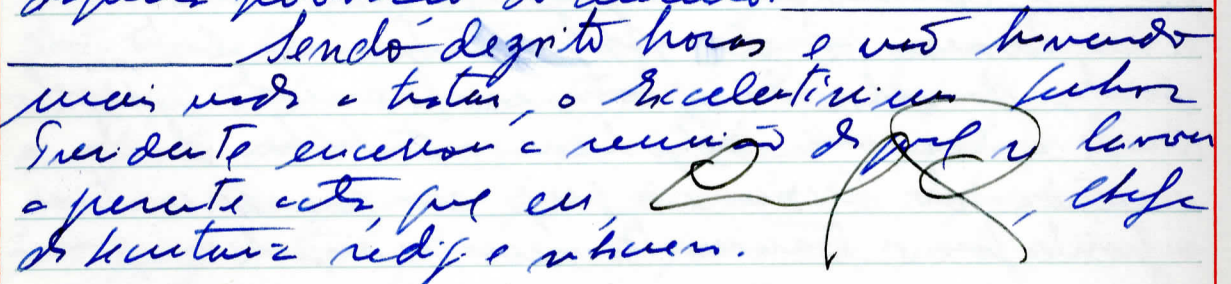 Sendo dezoito horas e não havendo
mais nada a tratar, o Excelentissimo Senhor
Presidente encerrou a reunião da qual se lavrou
a presente acta, que eu, , Chefe
de Secretaria redigi e subscrevi.